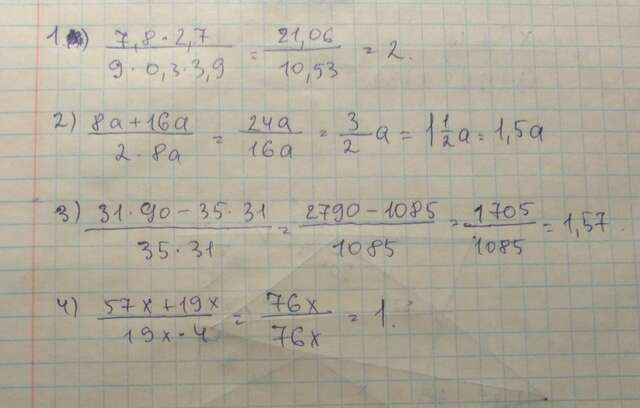 1.) (7,8·2,7)/(9·0,3·3,9) = 21,06/10,53 = 2.
2) (8a+16a)/(2·8a) = 24a/16a = 3/2 a = 1 1/2 a = 1,5a
3) (31·90-35·31)/(35·31) = (2790-1085)/1085 = 1705/1085 = 1,57.
4) (57x+19x)/(19x·4) = 76x/76x = 1.